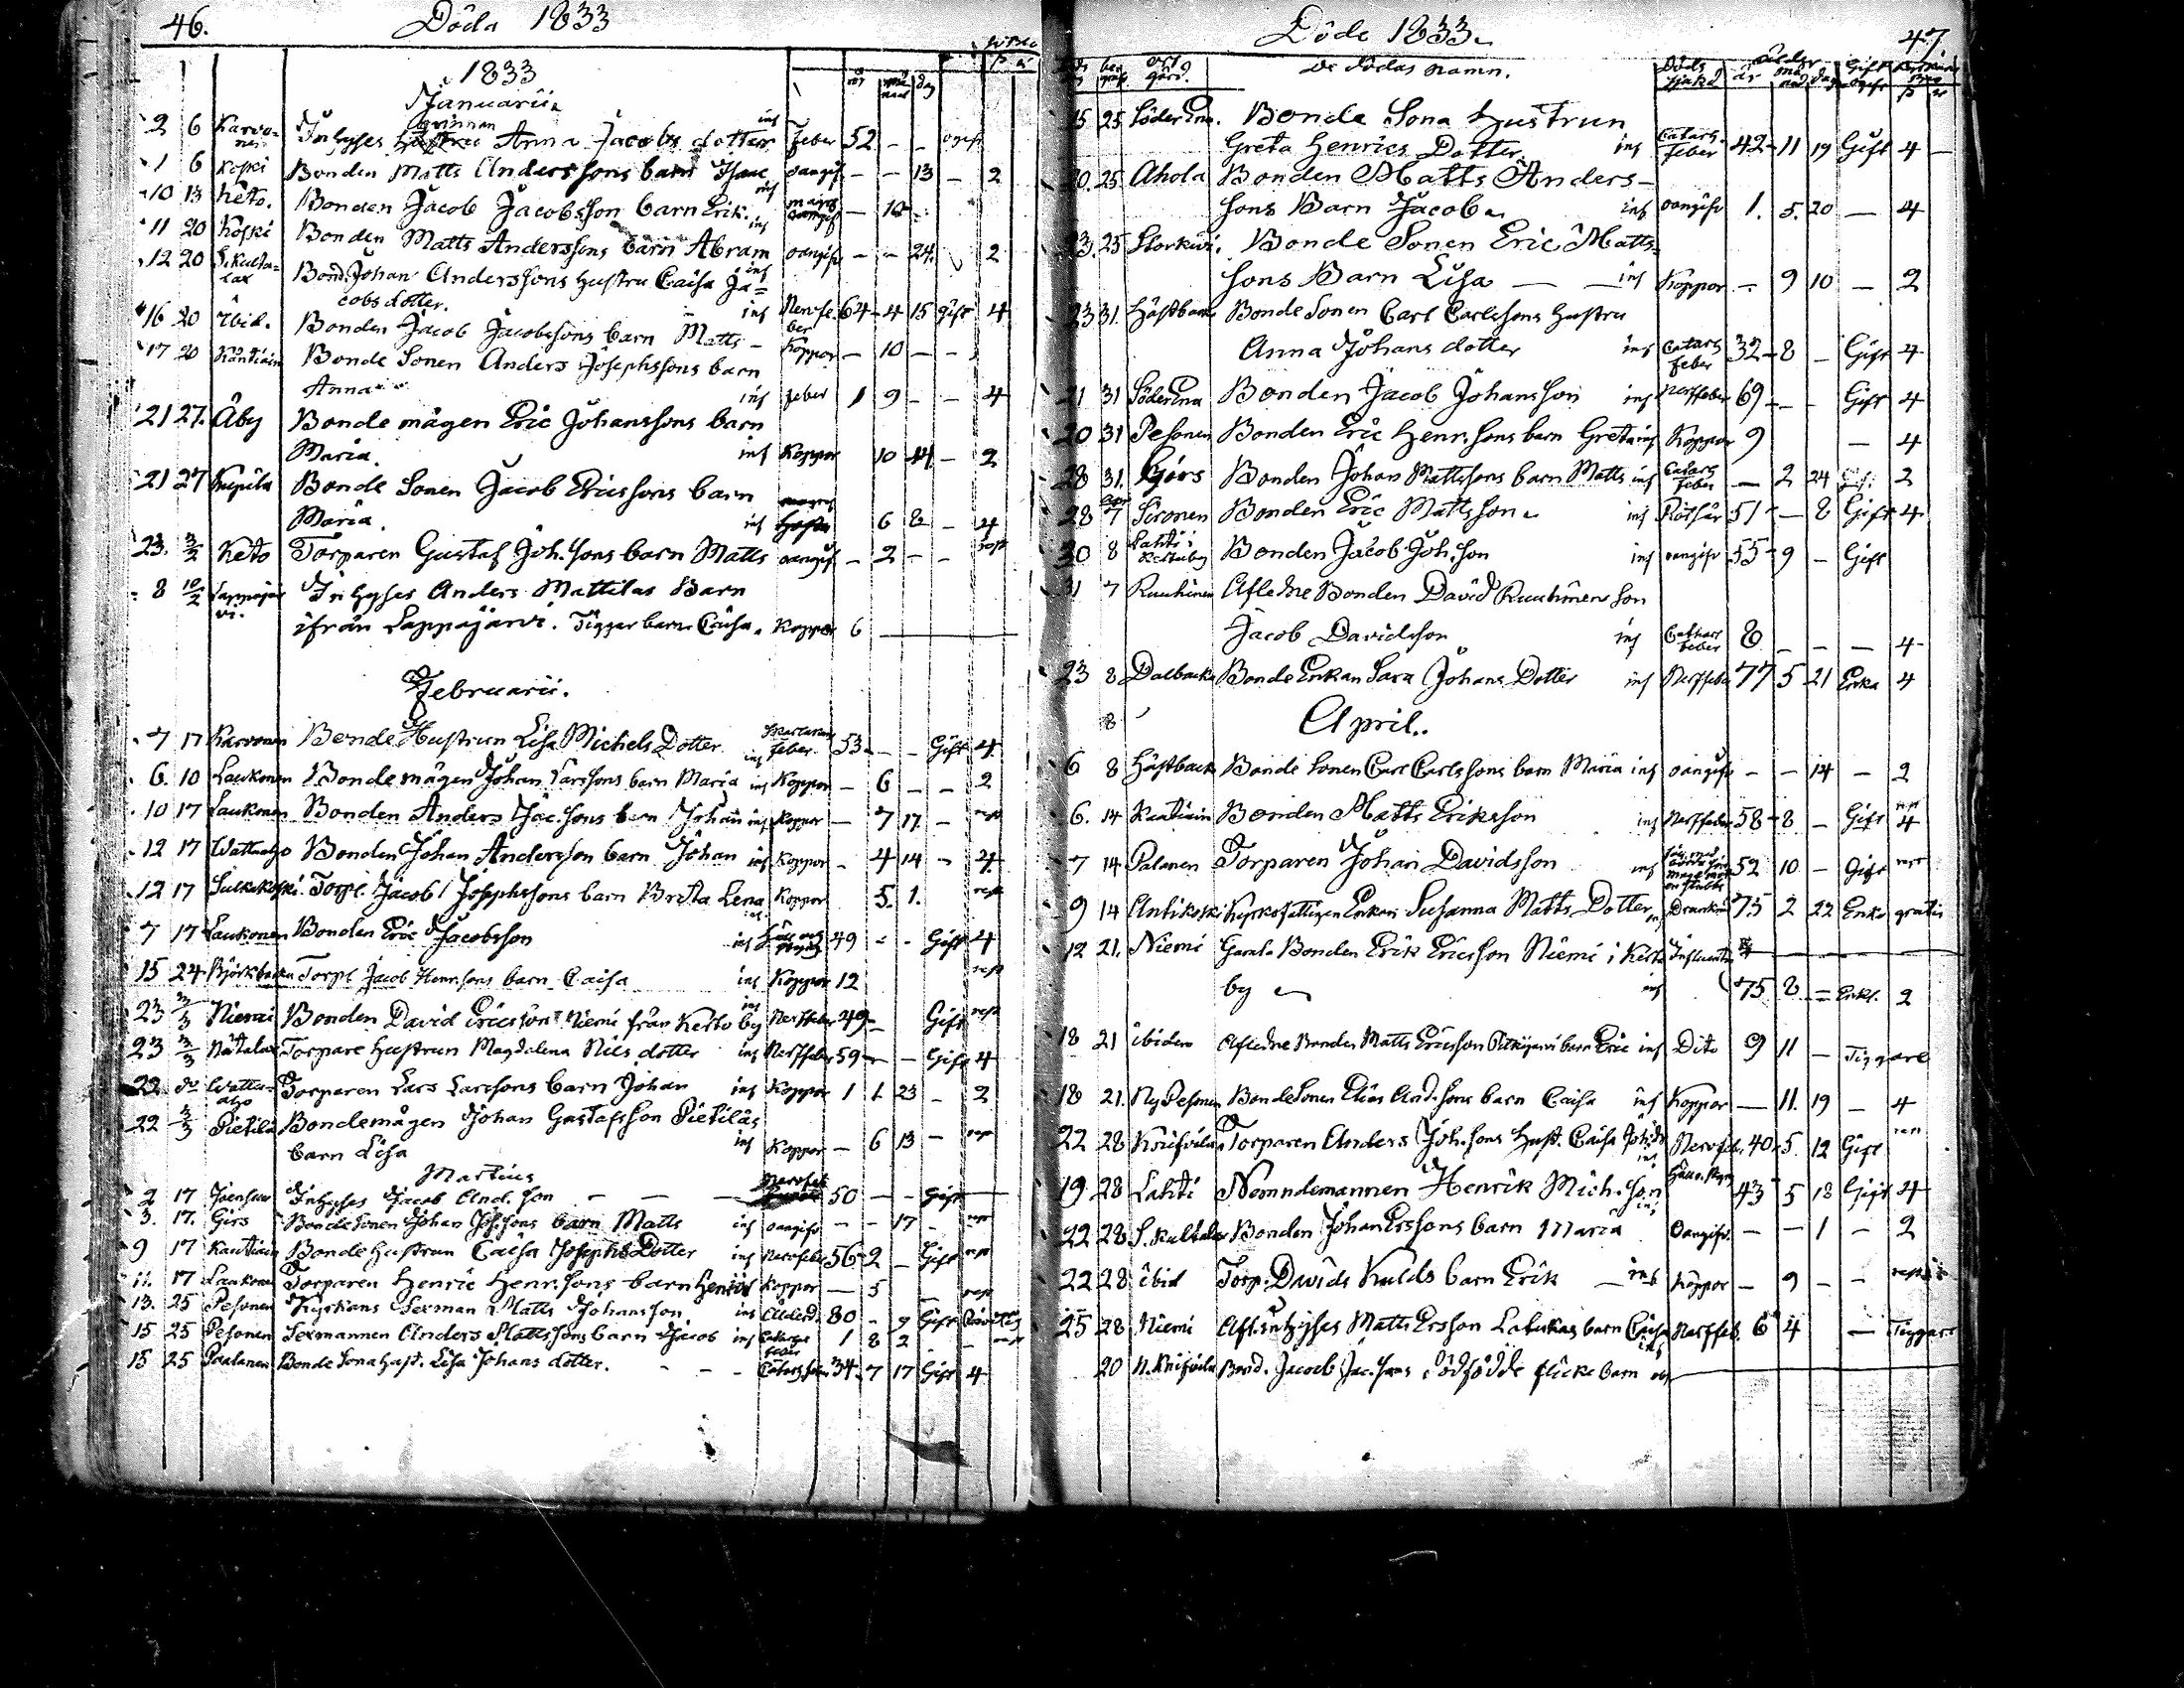 46. Döda 1833
1833
Januarii
2 6 Karvo- Inhyses qvinnan Anna Jacobs dotter Feber 52 - - ogift
nen
1 6 Koski Bonden Matts Anderssons barn Isaac oangif - - 13 - 2
10 13 Keto. Bonden Jacob Jacobsson barn Erik. ins
11 20 Koski Bonden Matts Anderssons barn Abram oangif - - 24. 2
12 20 S. Kulta- Bond. Johan Anderssons Hustru Caisa Ja=
lax cobs dotter. ins Nervfe- 64 - 4 15 gift 4
ber
16 20 Ibid. Bonden Jacob Jacobssons barn Matts - Koppor - 10 - -
17 20 Kantiain Bonde Sonen Anders Josephssons barn
Anna ins Feber 1 9 - - 4
21 27. Åby Bonde mågen Eric Johanssons barn
Maria. ins Koppor 10 14 - 2
21 27 Bonde Sonen Jacob Ericssons barn
Maria. ins 6 8 - 4
23. 3/2 Keto Torparen Gustaf Joh. Sons barn Matts oangif - 2 - -
8 10/2 Lappajär Inhyses Anders Mattilas Barn
vi. ifrån Lappajärvi. Tiggar barn Caisa. Koppor 6
Februarii.
7 17 Karvonen Bonde Hustrun Lisa Michels Dotter ins Feber 53 - - Gift 4
6. 10 Laukonen Bondemågen Johan Larssons barn Maria ins Koppor - 6 - - 2
10 17 Laukonen Bonden Anders Jac. Sons barn Johan ins Koppor - 7 17 - rest
12 17 Wattuaho Bonden Johan Andersson barn Johan ins Koppor - 4 14 - 4.
12 17 Sulkakoski Torp. Jacob Josephssons barn Brita Lena Koppor 5. 1. rest
7 17 Laukonen Bonden Eric Jacobsson ins 49 - - Gift 4
15 24 Björkbacka Torp. Jacob Henr. sons barn Caisa ins Koppor 12 rest
23 3/3 Niemi Bonden David Ericsson Niemi från Kerto by ins Nerffeber 49 - Gift rest
23 3/3 Nätalax Torpare Hustrun Magdalena Nils dotter ins Nerffeber 59 - - Gift 4
22 do Wattu- Torparen Lars Larssons barn Johan ins Koppor 1 1 23 - 2
aho
22 3/3 Pietilä Bondemågen Johan Gustafsson Pietiläs
barn Lisa ins Koppor - 6 13 - rest
Martius
2 17 Joensuu Inhyses Jacob And. Son - - - 50 - - Gift
3. 17. Girs Bonde Sonen Johan Joh. sons barn Matts ins oangifv - - 17 - rest
9 17 Kantiain Bonde Hustrun Caisa Josephs Dotter ins Nervfeber 56 - 2 - Gift rest
11. 17 Laukonen Torparen Henric Henr. Sons barn Henric Koppor - 5 - rest
13. 25 Pesonen Kyrkians Sexman Matts Johansson ins Ålderd. 80 - 9 Gift
15 25 Pesonen Sexmannen Anders Mattssons barn Jacob ins Catarrs 1 8 2 - rest
feber
15 25 Paalanen Bonde Sona Hust. Lisa Johans dotter. - - - 34 - 7 17 Gift 4
Döde 1833. 47
beg ort De dödas namn. Döds ålder Gift
graf. gård. sjukd. år mån dag ogift
15 25 Söder Ena. Bonde Sona Hustrun
Greta Henrics Dotter ins Catarr 42 - 11 19 Gift 4 -
Feber
20. 25 Ahola Bonden Matts Anders-
sons Barn Jacob ins oangifv 1. 5. 20 - 4
23. 25 Bonde Sonen Eric Matts=
sons Barn Lisa - - ins Koppor - 9 10 - 2
23 31. Häftbacka Bonde Sonen Carl Carlssons Hustru
Anna Johans dotter ins Catarr 32 - 8 - Gift 4
Feber
21 31 Söder Ena Bonden Jacob Johansson ins Nerffeber 69 - - Gift 4
20 31 Pesonen Bonden Eric Henr. sons barn Greta ins Koppor 9 - 4
28 31. Gjörs Bonden Johan Mattssons barn Matts ins Catarr - 2 24 2
Feber
28 7 Sironen Bonden Eric Mattsson ins Rötsår 51 - - 8 Gift 4
30 8 Lahti i Bonden Jacob Joh. Son ins oangifv 55 - 9 - Gift
Kertuby
31 7 Ruuhinen Afledne Bonden David Ruuhinens Son
Jacob Davidsson ins Catharr 8 - - - 4
feber
23 8 Dalbacka Bonde Enkan Sara Johans Dotter ins Nerffeber 77 5 21 Enka 4
8 April..
6 8 Häftbacka Bonde Sonen Carl Carlssons barn Maria ins oangifv - - 14 - 2
6. 14 Kantiain Bonden Matts Eriksson ins Nerffeber 58 - 8 - Gift 4
7 14 Palanen Torparen Johan Davidsson ins 52 10 - Gift rest
9 14 Antikoski Kyrkofattigen Enkan Susanna Matts Dotter 75 2 22 Enka gratis
12 21. Niemi Gamla Bonden Erik Ericsson Niemi i Kerto Influentia
by ins 75 8 = Enkl. 2
18 21 ibidem Afledne Bonden Matts Ericsson Pitkäjärvi barn Eric ins Dito 9 11 - Tiggare
18 21. Ny Pesonen Bonde Sonen Elias And. Sons barn Caisa ins Koppor - 11. 19 - 4
22 28 Knifvila Torparen Anders Joh. Sons Hust. Caisa Joh. Dr Nervfeb. 40. 5. 12 Gift rest
19 28 Lahti Nemndemannen Henrik Mich. Son ins 43 5 18 Gift 4
22 28 S. Kultalax Bonden Johan Erssons barn Maria Oangifv. - - 1 - 2
22 28 ibid Torp. Davids Kulds barn Erik - ins Koppor - 9 - - rest
25 28 Niemi Afl. inhyses Matts Ersson Latukas barn Caisa ins Nerffeb. 6 4 - Tiggare
20 N. Knifvila Bond. Jacob Jac. Sons dödfödde flicke barn